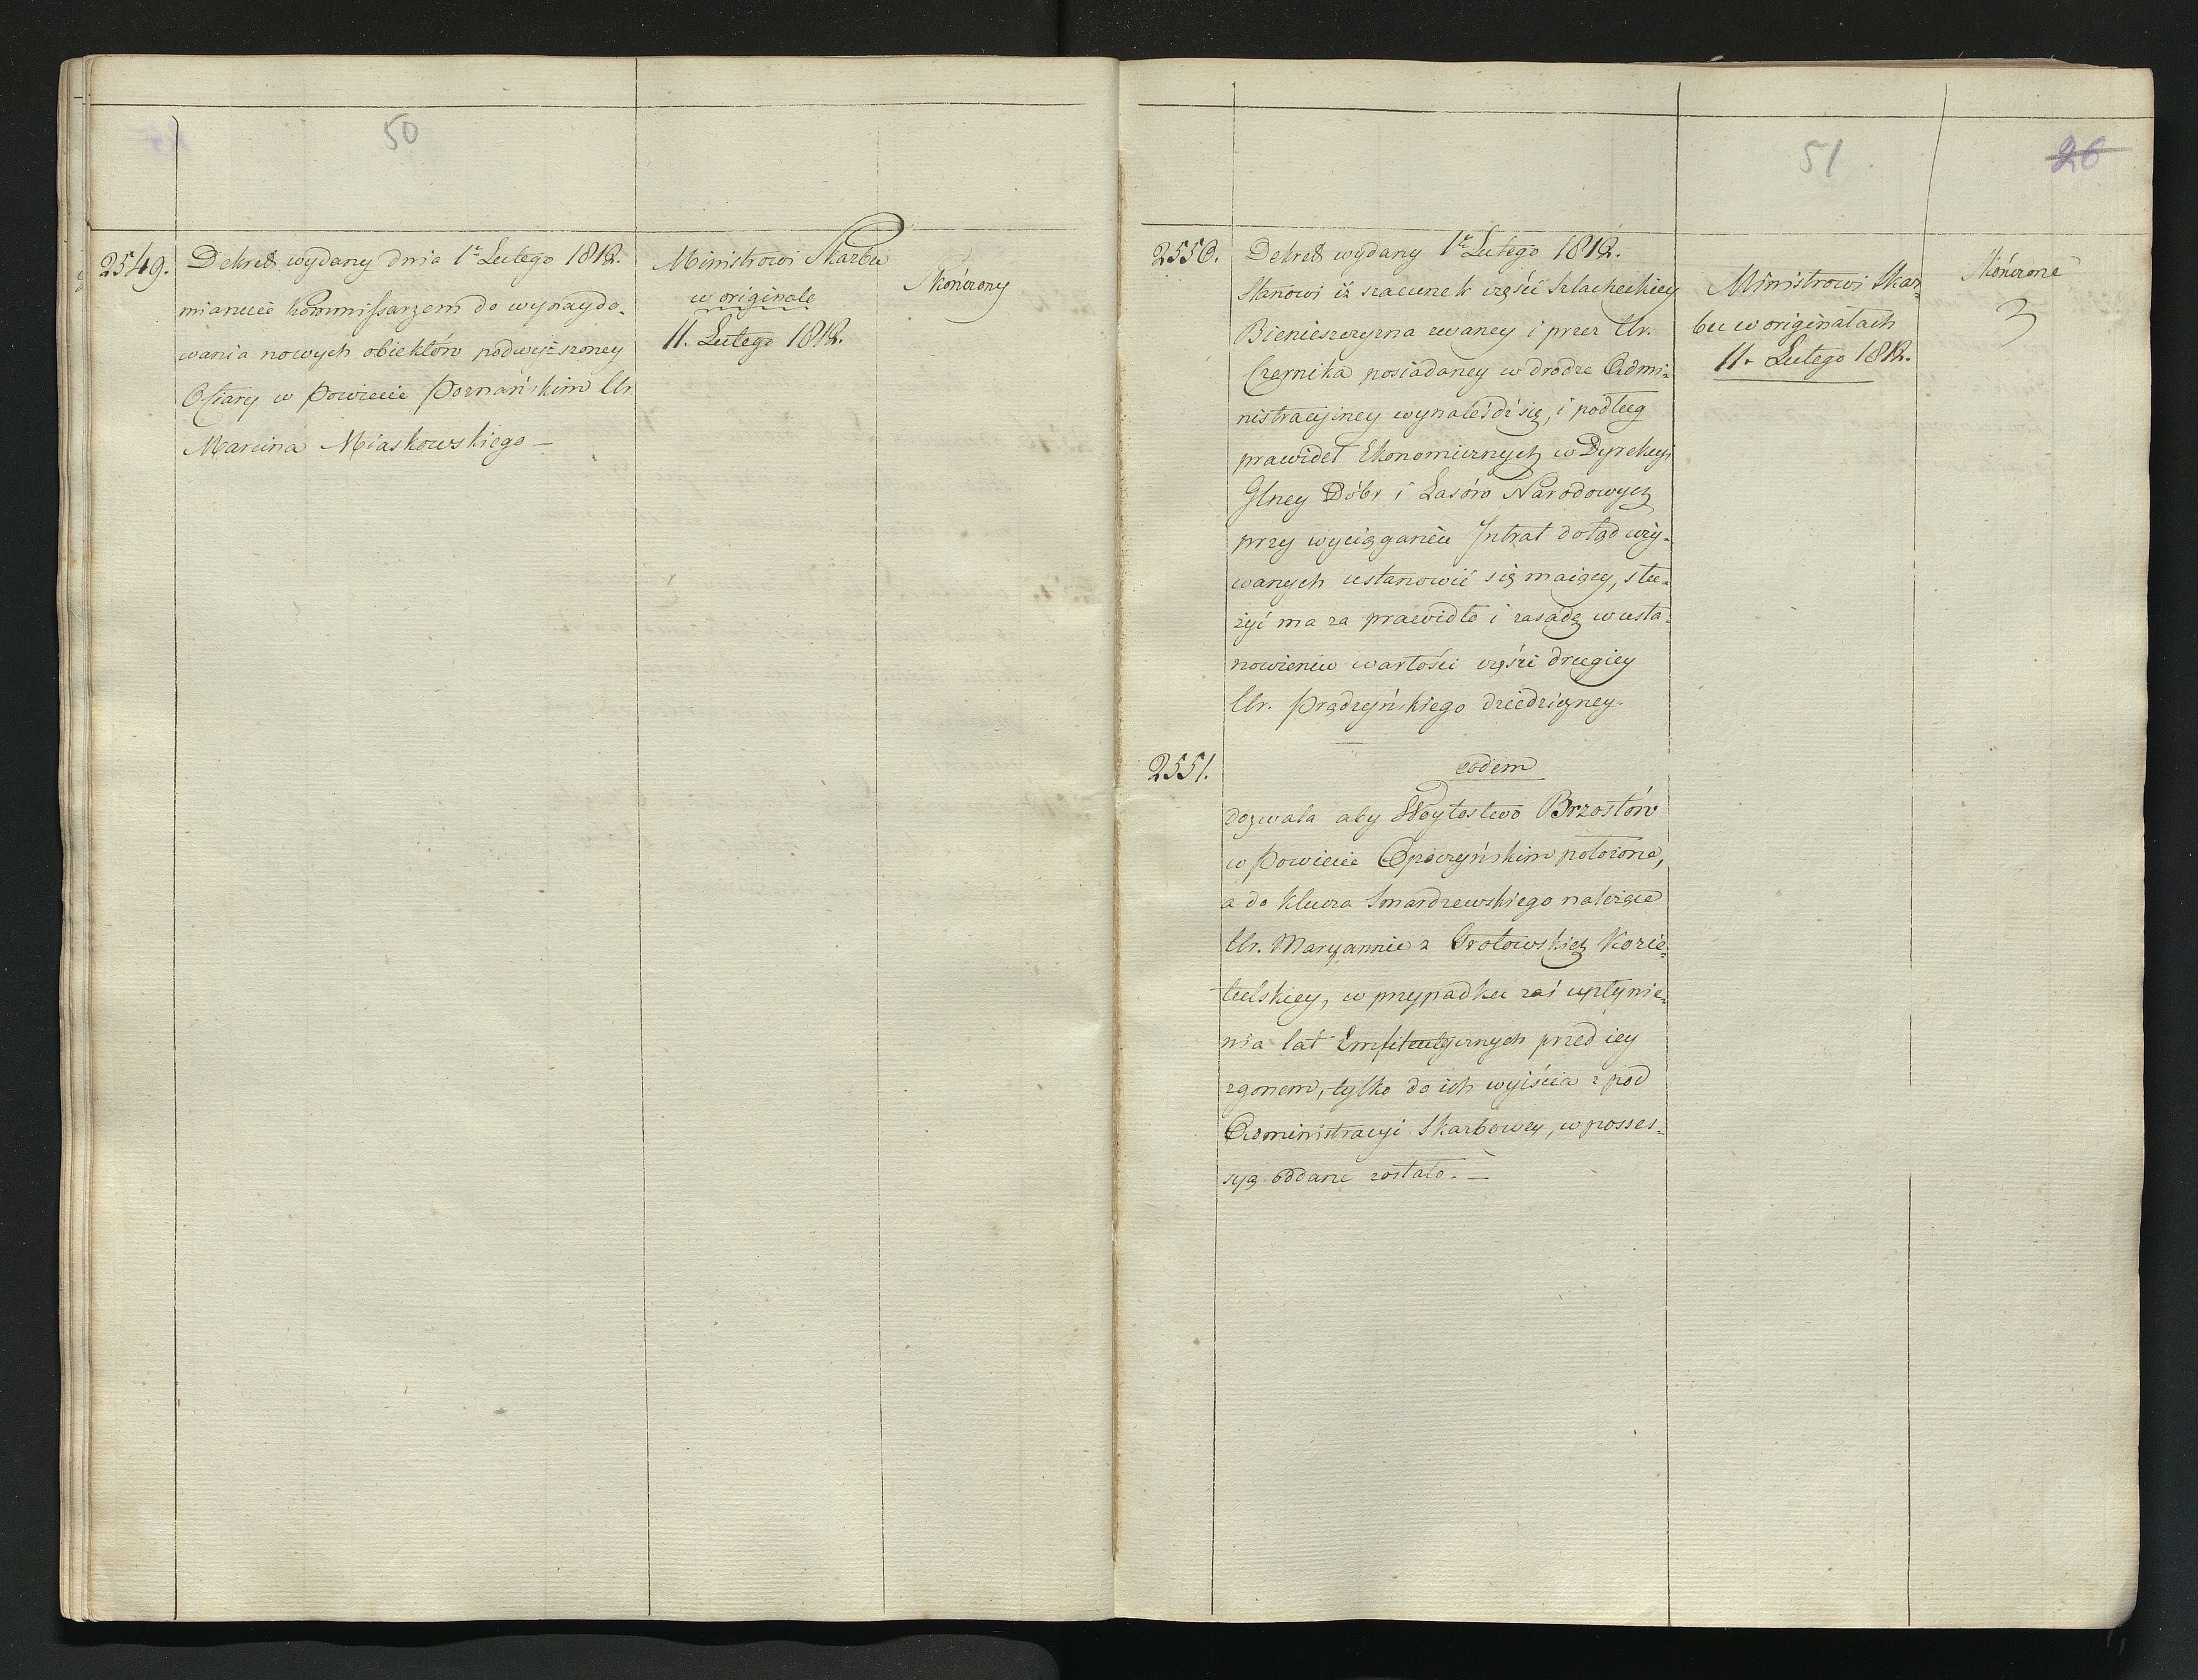 50
2549.
Dekret wydany dnia 1º Lutego 1812.
mianuie Kommissarzem do wynaydo-
wania nowych obiektów podwyższoney
Ofiary w Powiecie Poznańskim Ur.
Marcina Miaskowskiego —
Ministrowi Skarbu
w originale
11. Lutego 1812.
Skończony
51
26
2550.
Dekret wydany 1º Lutego 1812.
Stanowi iż szacunek części szlacheckiey
Bienieszczyzna zwaney i przez Ur.
Czernika posiadaney w drodze Admi-
nistracyiney wynaleśdź się, i podług
prawideł Ekonomicznych w Dyrekcyi
Glney Dóbr i Lasów Narodowych
przy wyciąganiu Intrat dotąd uży-
wanych ustanowić się maiący, słu-
żyć ma za prawidło i zasadę w usta-
nowieniu wartości części drugiey
Ur. Prądzyńskiego dziedziczney
2551.
eodem
dozwala aby Woytostwo Brzostów
w Powiecie Opoczyńskim położone,
a do klucza Smardzewskiego należące
Ur. Maryannie z Grotowskich Kozie-
tulskiey, w przypadku zaś upłynie-
nia lat Emfiteutycznych przed iey
zgonem, tylko do ich wyiścia z pod
Administracyi Skarbowey, w posses-
syą oddane zostało. —
Ministrowi Skar-
bu w originałach
11. Lutego 1812.
Skończone
3